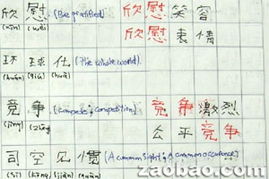 欣慰 (Be gratified) 欣慰笑容
(xīn) (wèi) 欣慰衷情
环球仕 (The whole world)
(huán) (qiú)
竞争 (Compete; competition) 竞争激烈
(jìng) (zhēng) 公平竞争
司空见惯 (A common sight; A common occurrence)
(sī) (kōng) (jiàn) (guàn)
zaobao.com